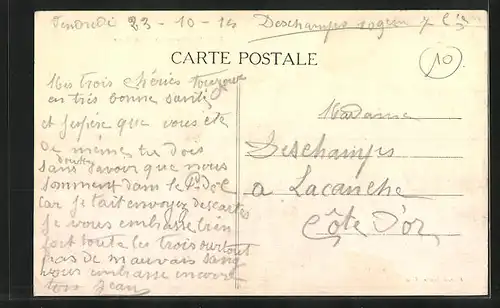 Vendredi 23-10-14 Deschamps
CARTE POSTALE
10
Mes trois chéries toujours
en très bonne santé
et j'espère que vous ête
de même tu dois
sans doute savoir que nous
somment dans le
car je t'ait envoyez des cartes
je vous embrasse bien
fort toute les trois surtout
pas de mauvais sang
vous embrasse encore
ton Jean
Madame
Deschamps
a Lacanche
Côte D'or